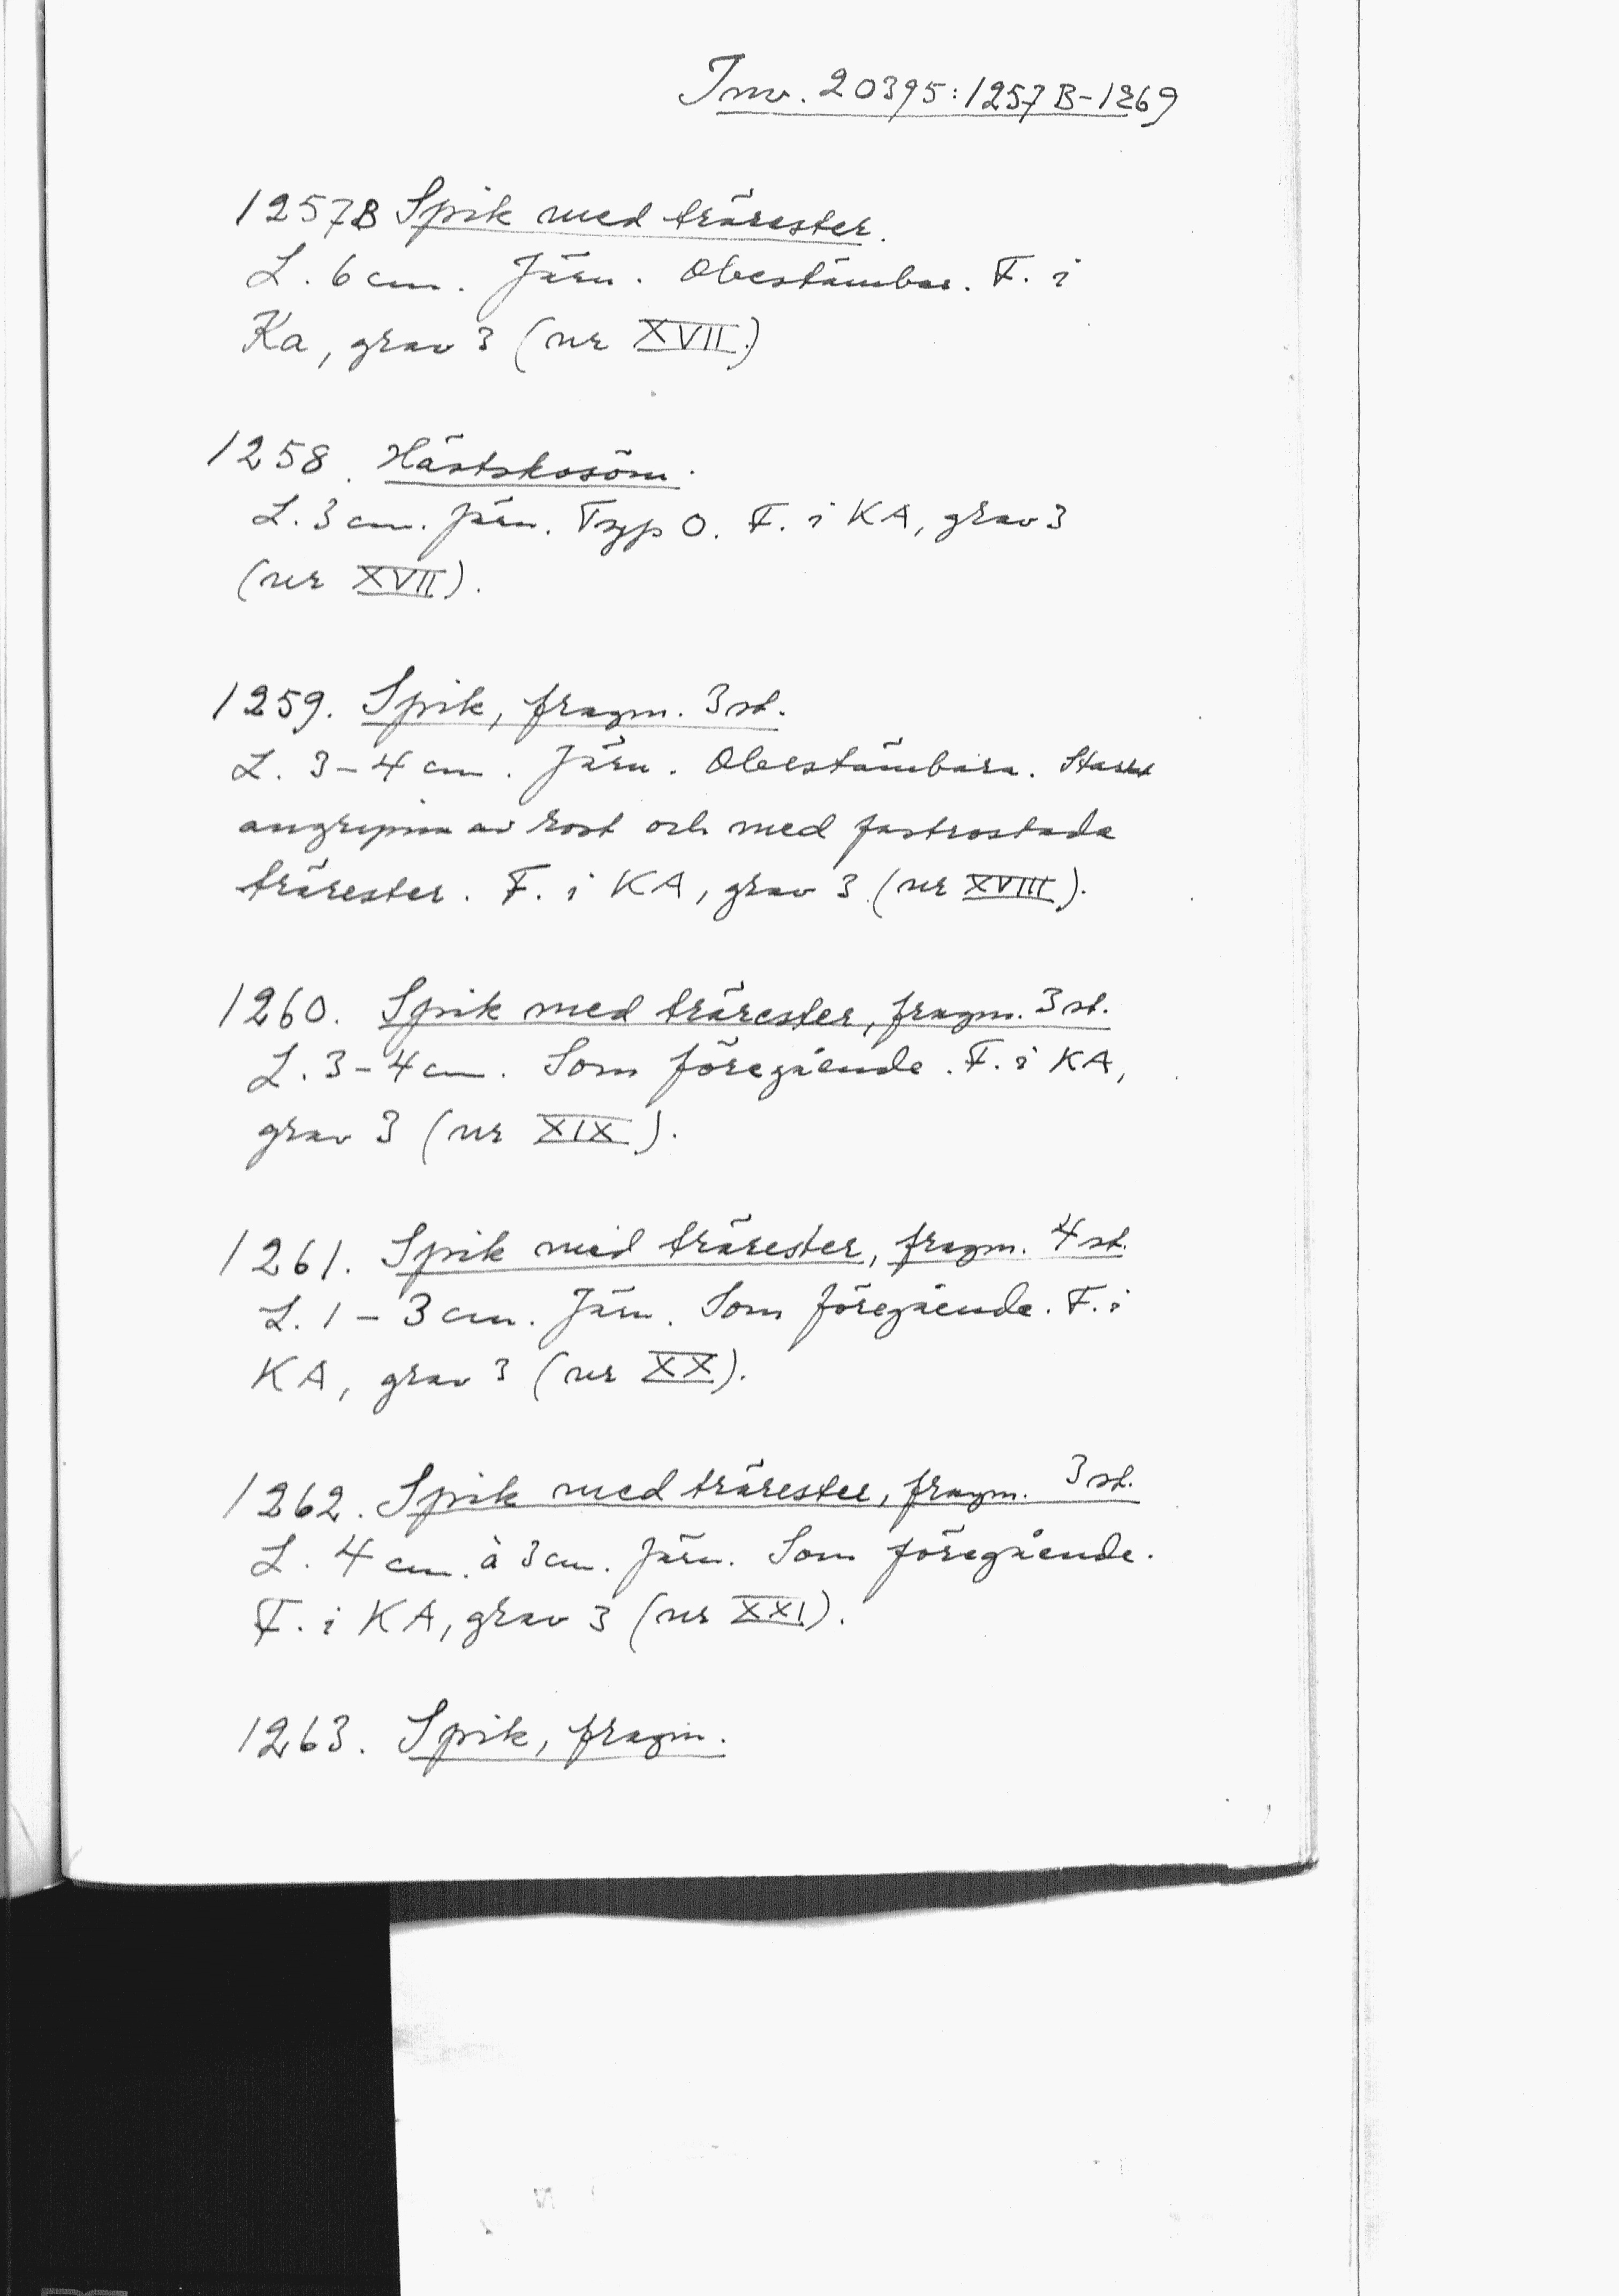 Inv. 20395:1257B-1269
1257B Spik med trärester.
L. 6 cm. Järn. Obestämbar. F. i
Ka, grav 3 (nr XVII)
1258. Hästskosöm.
L. 3 cm. Järn. Typ O. F. i KA, grav 3
(nr XVII).
1259. Spik, fragm. 3 st.
L. 3-4 cm. Järn. Obestämbara. Starkt
angripna av rost och med fastrostade
trärester. F. i KA, grav 3 (nr XVIII).
1260. Spik med trärester, fragm. 3 st.
L. 3-4 cm. Som föregående. F. i KA,
grav 3 (nr XIX).
1261. Spik med trärester, fragm. 4 st.
L. 1-3 cm. Järn. Som föregående. F. i
KA, grav 3 (nr XX).
1262. Spik med trärester, fragm. 3 st.
L. 4 cm. à 3 cm. Järn. Som föregående.
F. i KA, grav 3 (nr XXI).
1263. Spik, fragm.